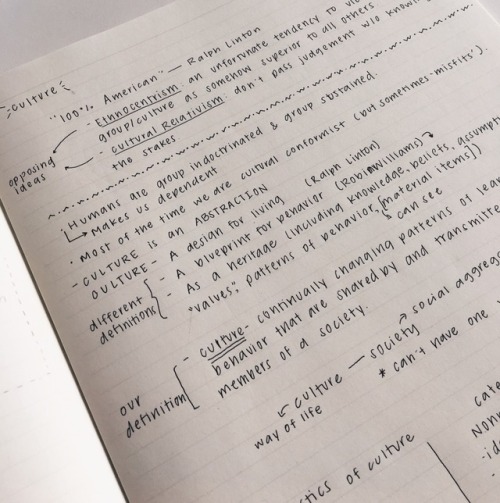 culture
"100% American" — Ralph Linton
- Ethnocentrism: an unfortunate tendency to
group/culture as somehow superior to all others
- Cultural Relativism: don't pass judgement w/o
the stakes
opposing
ideas
Humans are group indoctrinated & group sustained.
↳ Makes us dependent
• Most of the time we are cultural conformist (but sometimes-misfits').
- CULTURE is an ABSTRACTION
CULTURE - A design for living (Ralph Linton)
- A blueprint for behavior (Robin Williams)
- As a heritage (including knowledge, beliefs,
"values", patterns of behavior, [material items])
can see
different
definitions
- culture - continually changing patterns of
behavior that are shared by and
members of a society.
our
definition
culture — society social
way of life
* can't have one
of culture